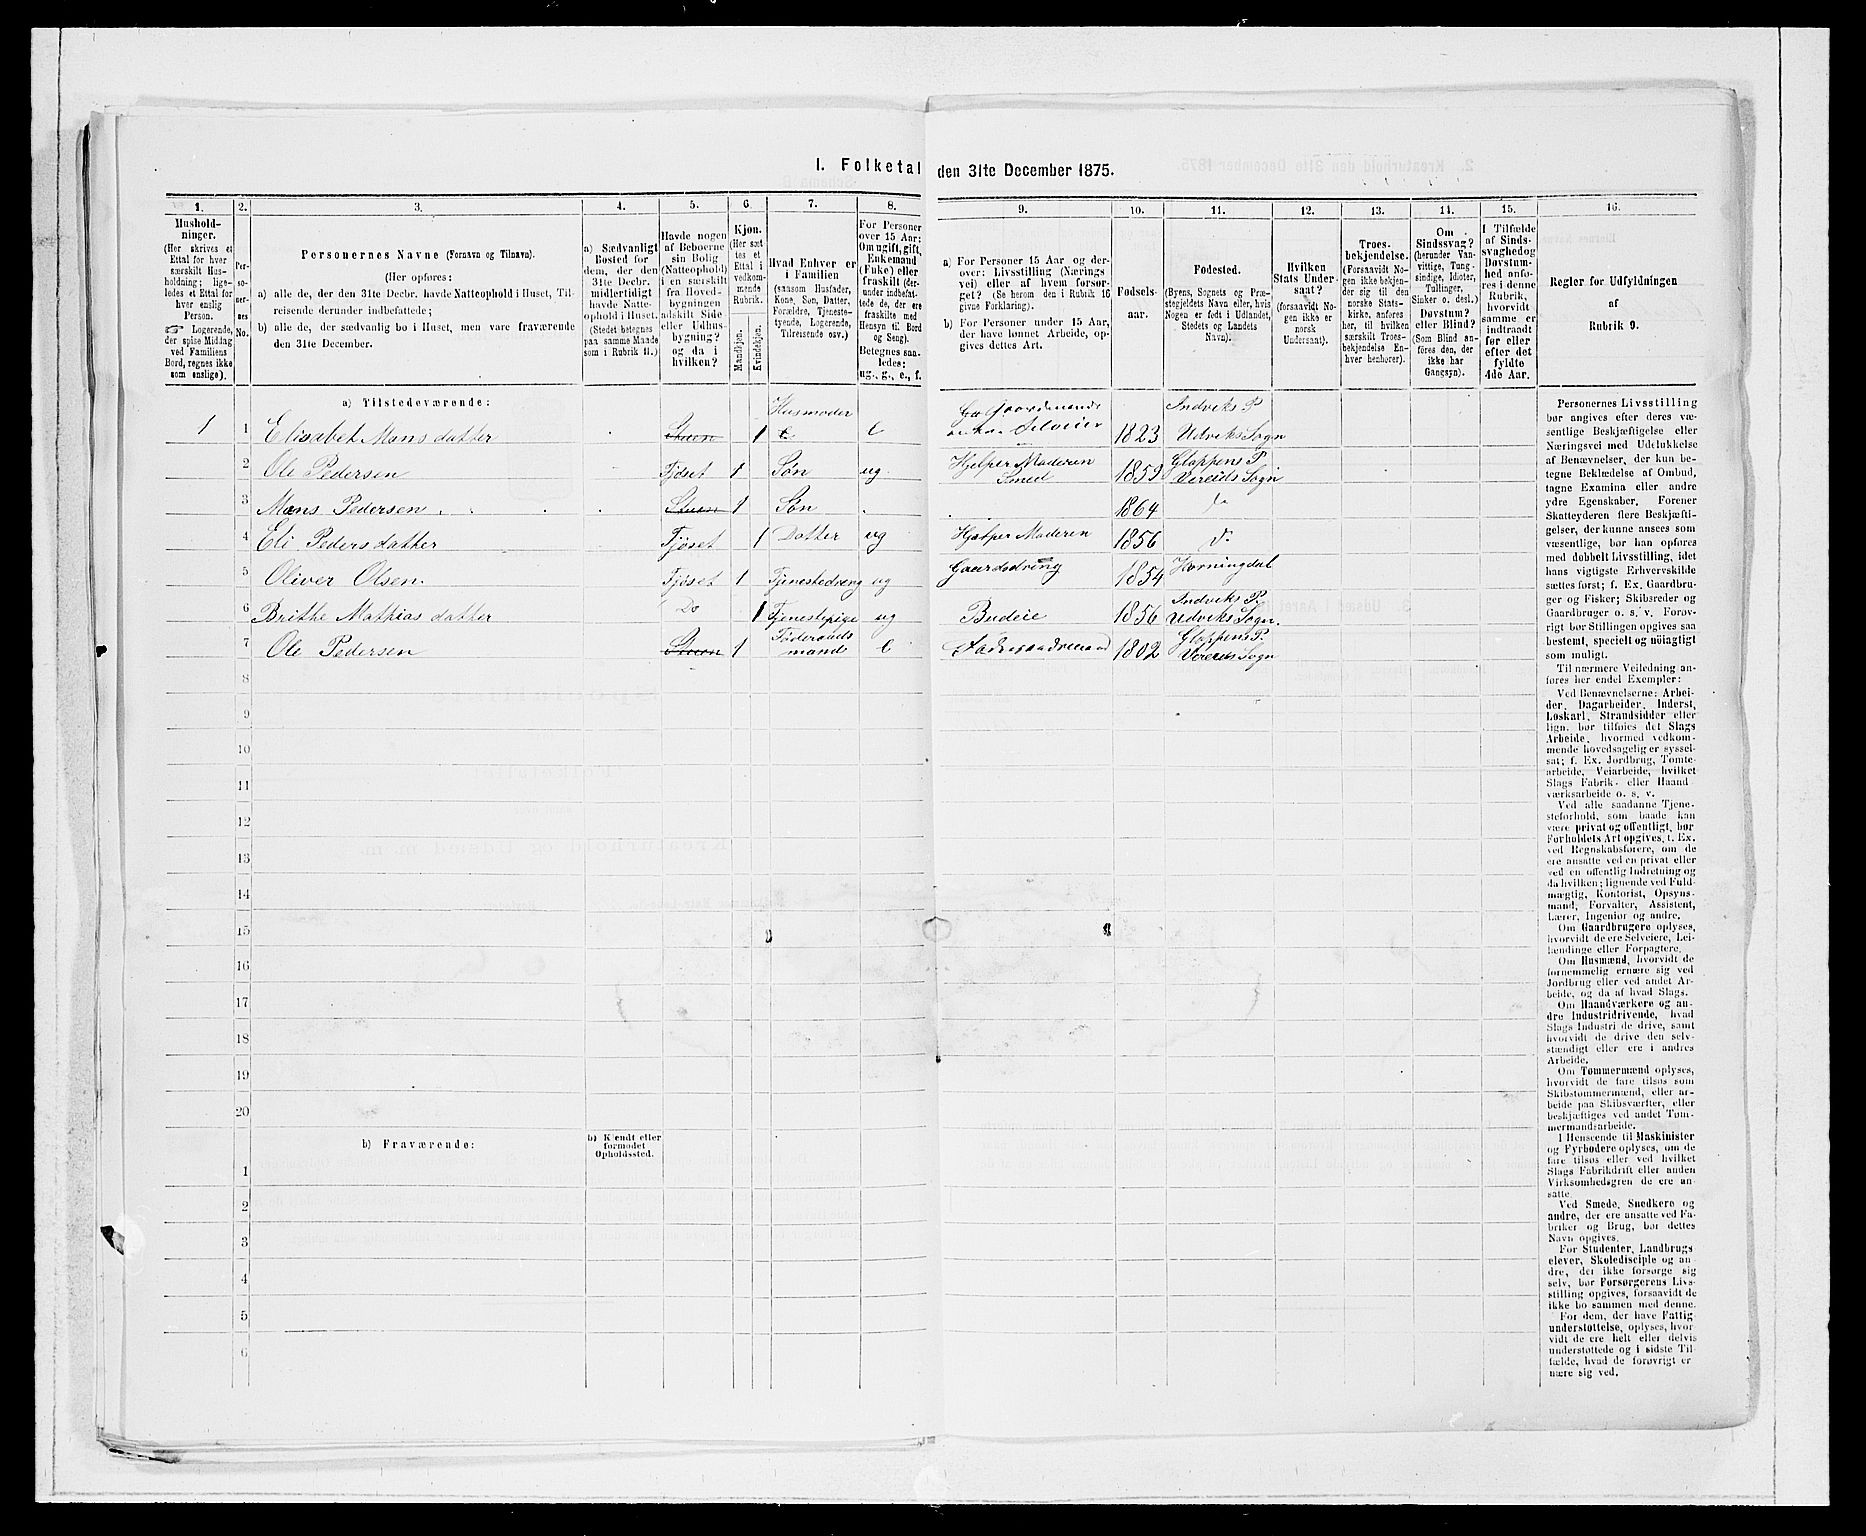 I. Folketal den 31te December 1875.
1.
Hushold-
ninger.
(Her skrives et
Ettal for hver
særskilt Hus-
holdning; lige-
ledes et Ettal for
hver enslig
Person.
Logerende,
der spise Middag
ved Familiens
Bord, regnes ikke
som enslige).
2.
Per-
soner-
nes
No.
3.
Personernes Navne (Fornavn og Tilnavn).
(Her opføres:
a) alle de, der den 31te Decbr. havde Natteophold i Huset, Til-
reisende derunder indbefattede;
b) alle de, der sædvanlig bo i Huset, men vare fraværende
den 31te December.
4.
a) Sædvanligt
Bosted for
dem, der den
31te Decbr.
midlertidigt
havde Natte-
ophold i Huset.
(Stedet betegnes
paa samme Maade
som i Rubrik 11.)
5.
Havde nogen
af Beboerne
sin Bolig
(Natteophold)
i en særskilt
fra Hoved-
bygningen
adskilt Side-
eller Udhus-
bygning?
og da i
hvilken?
6.
Kjøn.
(Her sæt-
tes et
Ettal i
vedkom-
mende
Rubrik.
Mandkjøn.
Kvindekjøn.
7.
Hvad Enhver er
i Familien
(saasom Husfader,
Kone, Søn, Datter,
Forældre, Tjeneste-
tyende, Logerende,
Tilreisende osv.)
8.
For Personer
over 15 Aar:
Om ugift, gift,
Enkemand
(Enke) eller
fraskilt (der-
under indbefat-
tede de, der ere
fraskilte med
Hensyn til Bord
og Seng).
Betegnes saa-
ledes:
ug., g., e., f.
9.
a) For Personer 15 Aar og der-
over: Livsstilling (Nærings-
vei) eller af hvem forsør-
get? (Se herom den i Rubrik 16
givne Forklaring).
b) For Personer under 15 Aar,
der have lønnet Arbeide, op-
gives dettes Art.
10.
Fødsels-
aar.
11.
Fødested.
(Byens, Sognets og Præ-
stegjeldets Navn eller, hvis
Nogen er født i Udlandet,
Stedets og Landets
Navn).
12.
Hvilken
Stats Under-
saat?
(forsaavidt No-
gen ikke er
norsk
Undersaat).
13.
Troes-
bekjendelse.
(Forsaavidt No-
gen ikke bekjen-
der sig til den
norske Stats-
kirke, anføres
her, til hvilken
særskilt Troes-
bekjendelse En-
hver henhører).
14.
Om
Sindssvag?
(herunder Van-
vittige, Tung-
sindige, Idioter,
Tullinger,
Sinker o. desl.)
Døvstum?
eller Blind?
(Som Blind an-
føres den, der
ikke har
Gangsyn).
15.
I Tilfælde
af Sinds-
svaghed og
Døvstum-
hed anfø-
res i denne
Rubrik,
hvorvidt
samme er
indtraadt
før eller
efter det
fyldte
4de Aar.
16.
Regler for Udfyldningen
af
Rubrik 9.
a) Tilstedeværende:
1 1 Elisabet Mons datter Stuen 1 Husmoder e Selveier 1823 Indviks P Udviks Sogn
2 Ole Pedersen Fjøset 1 Søn ug Hjelper Moderen Smed 1859 Gloppens P. Vereids Sogn
3 Mons Pedersen Stuen 1 Søn 1864 do
4 Eli Peders datter Fjøset 1 Datter ug Hjelper Moderen 1856 do
5 Oliver Olsen Fjøset 1 Tjenestedreng ug Gaardsdreng 1854 Horningdal
6 Brithe Mathias datter Do 1 Tjenestepige ug Budeie 1856 Indviks P. Udviks Sogn.
7 Ole Pedersen Stuen 1 Føderaads mand e 1802 Gloppens P. Vereids Sogn
8
9
10
11
12
13
14
15
16
17
18
19
20
b) Fraværende:
b) Kjendt eller
formodet
Opholdssted.
1
2
3
4
5
6
Personernes Livsstilling
bør angives efter deres væ-
sentlige Beskjæftigelse eller
Næringsvei med Udelukkelse
af Benævnelser, der kun be-
tegne Beklædelse af Ombud,
tagne Examina eller andre
ydre Egenskaber. Forener
Skatteyderen flere Beskjæfti-
gelser, der kunne ansees som
væsentlige, bør han opføres
med dobbelt Livsstilling, idet
hans vigtigste Erhvervskilde
sættes først; f. Ex. Gaardbru-
ger og Fisker; Skibsreder og
Gaardbruger o. s. v. Forøv-
rigt bør Stillingen opgives saa
bestemt, specielt og nøiagtigt
som muligt.
Til nærmere Veiledning an-
føres her endel Exempler:
Ved Benævnelserne: Arbei-
der, Dagarbeider, Inderst,
Løskarl, Strandsidder eller
lign. bør tilføies det Slags
Arbeide, hvormed vedkom-
mende hovedsagelig er syssel-
sat; f. Ex. Jordbrug, Tomte-
arbeide, Veiarbeide, hvilket
Slags Fabrik- eller Haand-
værksarbeide o. s. v.
Ved alle saadanne Tjene-
steforhold, som baade kan
være privat og offentligt, bør
Forholdets Art opgives, f. Ex.
ved Regnskabsførere, om de
ere ansatte ved en privat eller
ved en offentlig Indretning og
da hvilken; lignende ved Fuld-
mægtig, Kontorist, Opsyns-
mand, Forvalter, Assistent,
Lærer, Ingeniør og andre.
Om Gaardbrugere oplyses,
hvorvidt de ere Selveiere, Lei-
lændinge eller Forpagtere.
Om Husmænd, hvorvidt de
fornemmelig ernære sig ved
Jordbrug eller ved andet Ar-
beide, og da af hvad Slags.
Om Haandværkere og an-
dre Industridrivende, hvad
Slags Industri de drive, samt
hvorvidt de drive den selv-
stændigt eller ere i andres
Arbeide.
Om Tømmermænd oplyses,
hvorvidt de fare tilsøs som
Skibstømmermænd, eller ar-
beide paa Skibsværfter, eller
beskjæftiges ved andet Tøm-
mermandsarbeide.
I Henseende til Maskinister
og Fyrbødere oplyses, om de
fare tilsøs eller ved hvilket
Slags Fabrikdrift eller anden
Virksomhedsgren de ere an-
satte.
Ved Smede, Snedkere og
andre, der ere ansatte ved Fa-
briker og Brug, bør dettes
Navn opgives.
For Studenter, Landbrugs-
elever, Skoledisciple og an-
dre, der ikke forsørge sig
selv, bør Forsørgerens Livs-
stilling opgives, forsaavidt de
ikke bo sammen med denne.
For dem, der have Fattig-
understøttelse, oplyses, hvor-
vidt de ere helt eller delvis
understøttede og i sidste Til-
fælde, hvad de forøvrigt er-
nære sig ved.